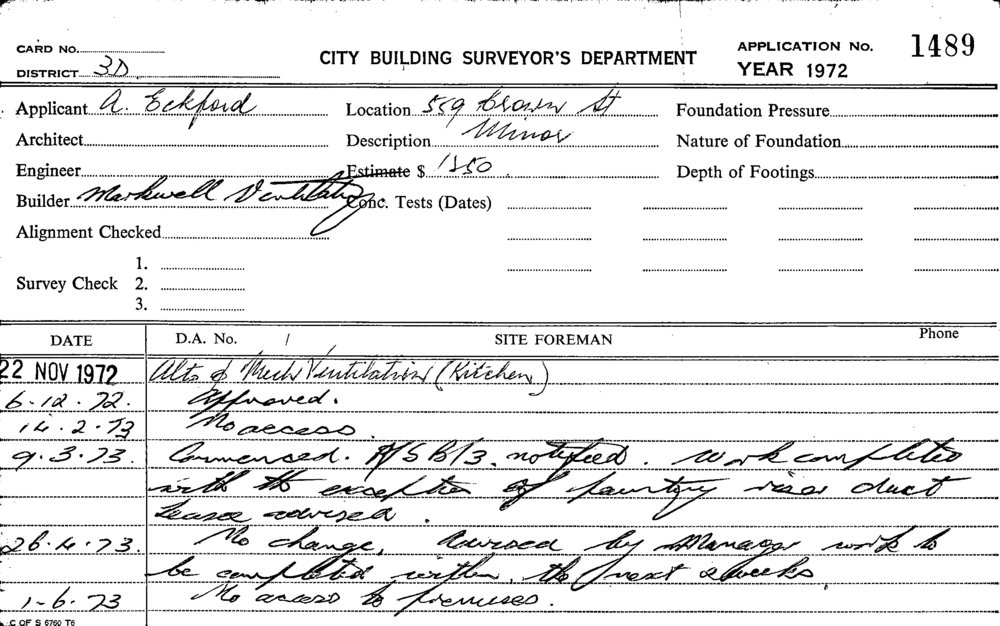 CARD NO.
DISTRICT 3D
CITY BUILDING SURVEYOR'S DEPARTMENT
APPLICATION NO. 1489
YEAR 1972
Applicant A. Eckford
Location 559 Crown St
Foundation Pressure
Architect
Description Minor
Nature of Foundation
Engineer
Estimate $ 1250
Depth of Footings
Builder Markwell Ventilating
Conc. Tests (Dates)
Alignment Checked
Survey Check
1.
2.
3.
DATE D.A. No. / SITE FOREMAN Phone
22 NOV 1972 Alts of Mech Ventilation (Kitchen)
6.12.72. Approved.
14.2.73 No access.
9.3.73. Commenced. notified. Work completed
with the exception of painting riser duct
advised.
26.4.73. No change. Advised by Manager work to
be completed within the next 2 weeks.
1-6.73 No access to premises.
C OF S 6760 T6